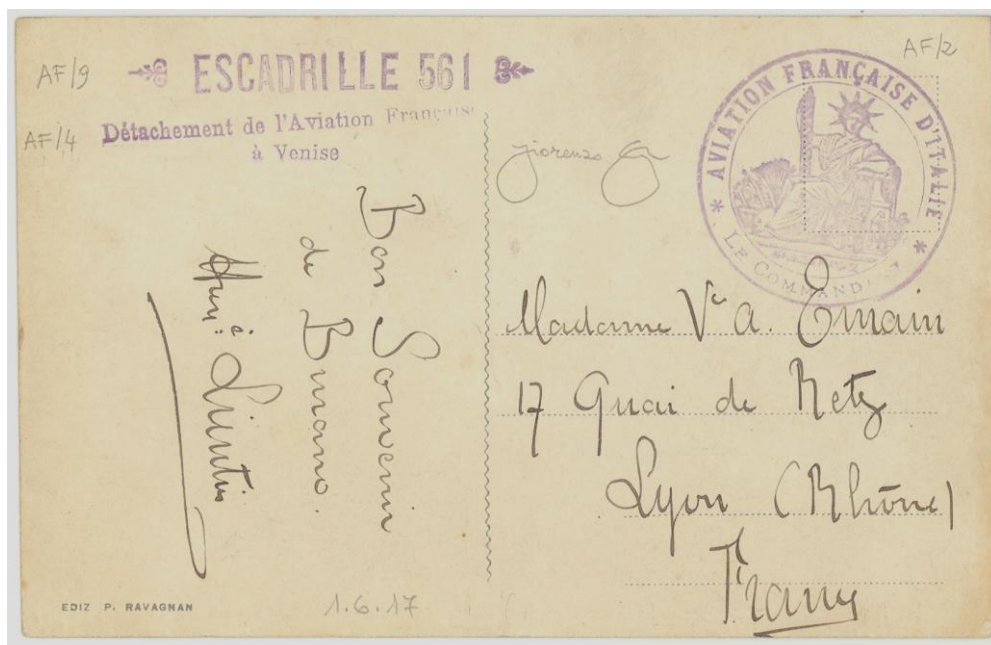 AF/9
ESCADRILLE 561
AF/4
Détachement de l'Aviation Française
à Venise
AF/2
AVIATION FRANÇAISE D'ITALIE
LE COMMANDANT
Bon Souvenir
de Burano.
Madame Vᵉ A.
17 Quai de Retz
Lyon (Rhône)
France
EDIZ P. RAVAGNAN
1.6.17